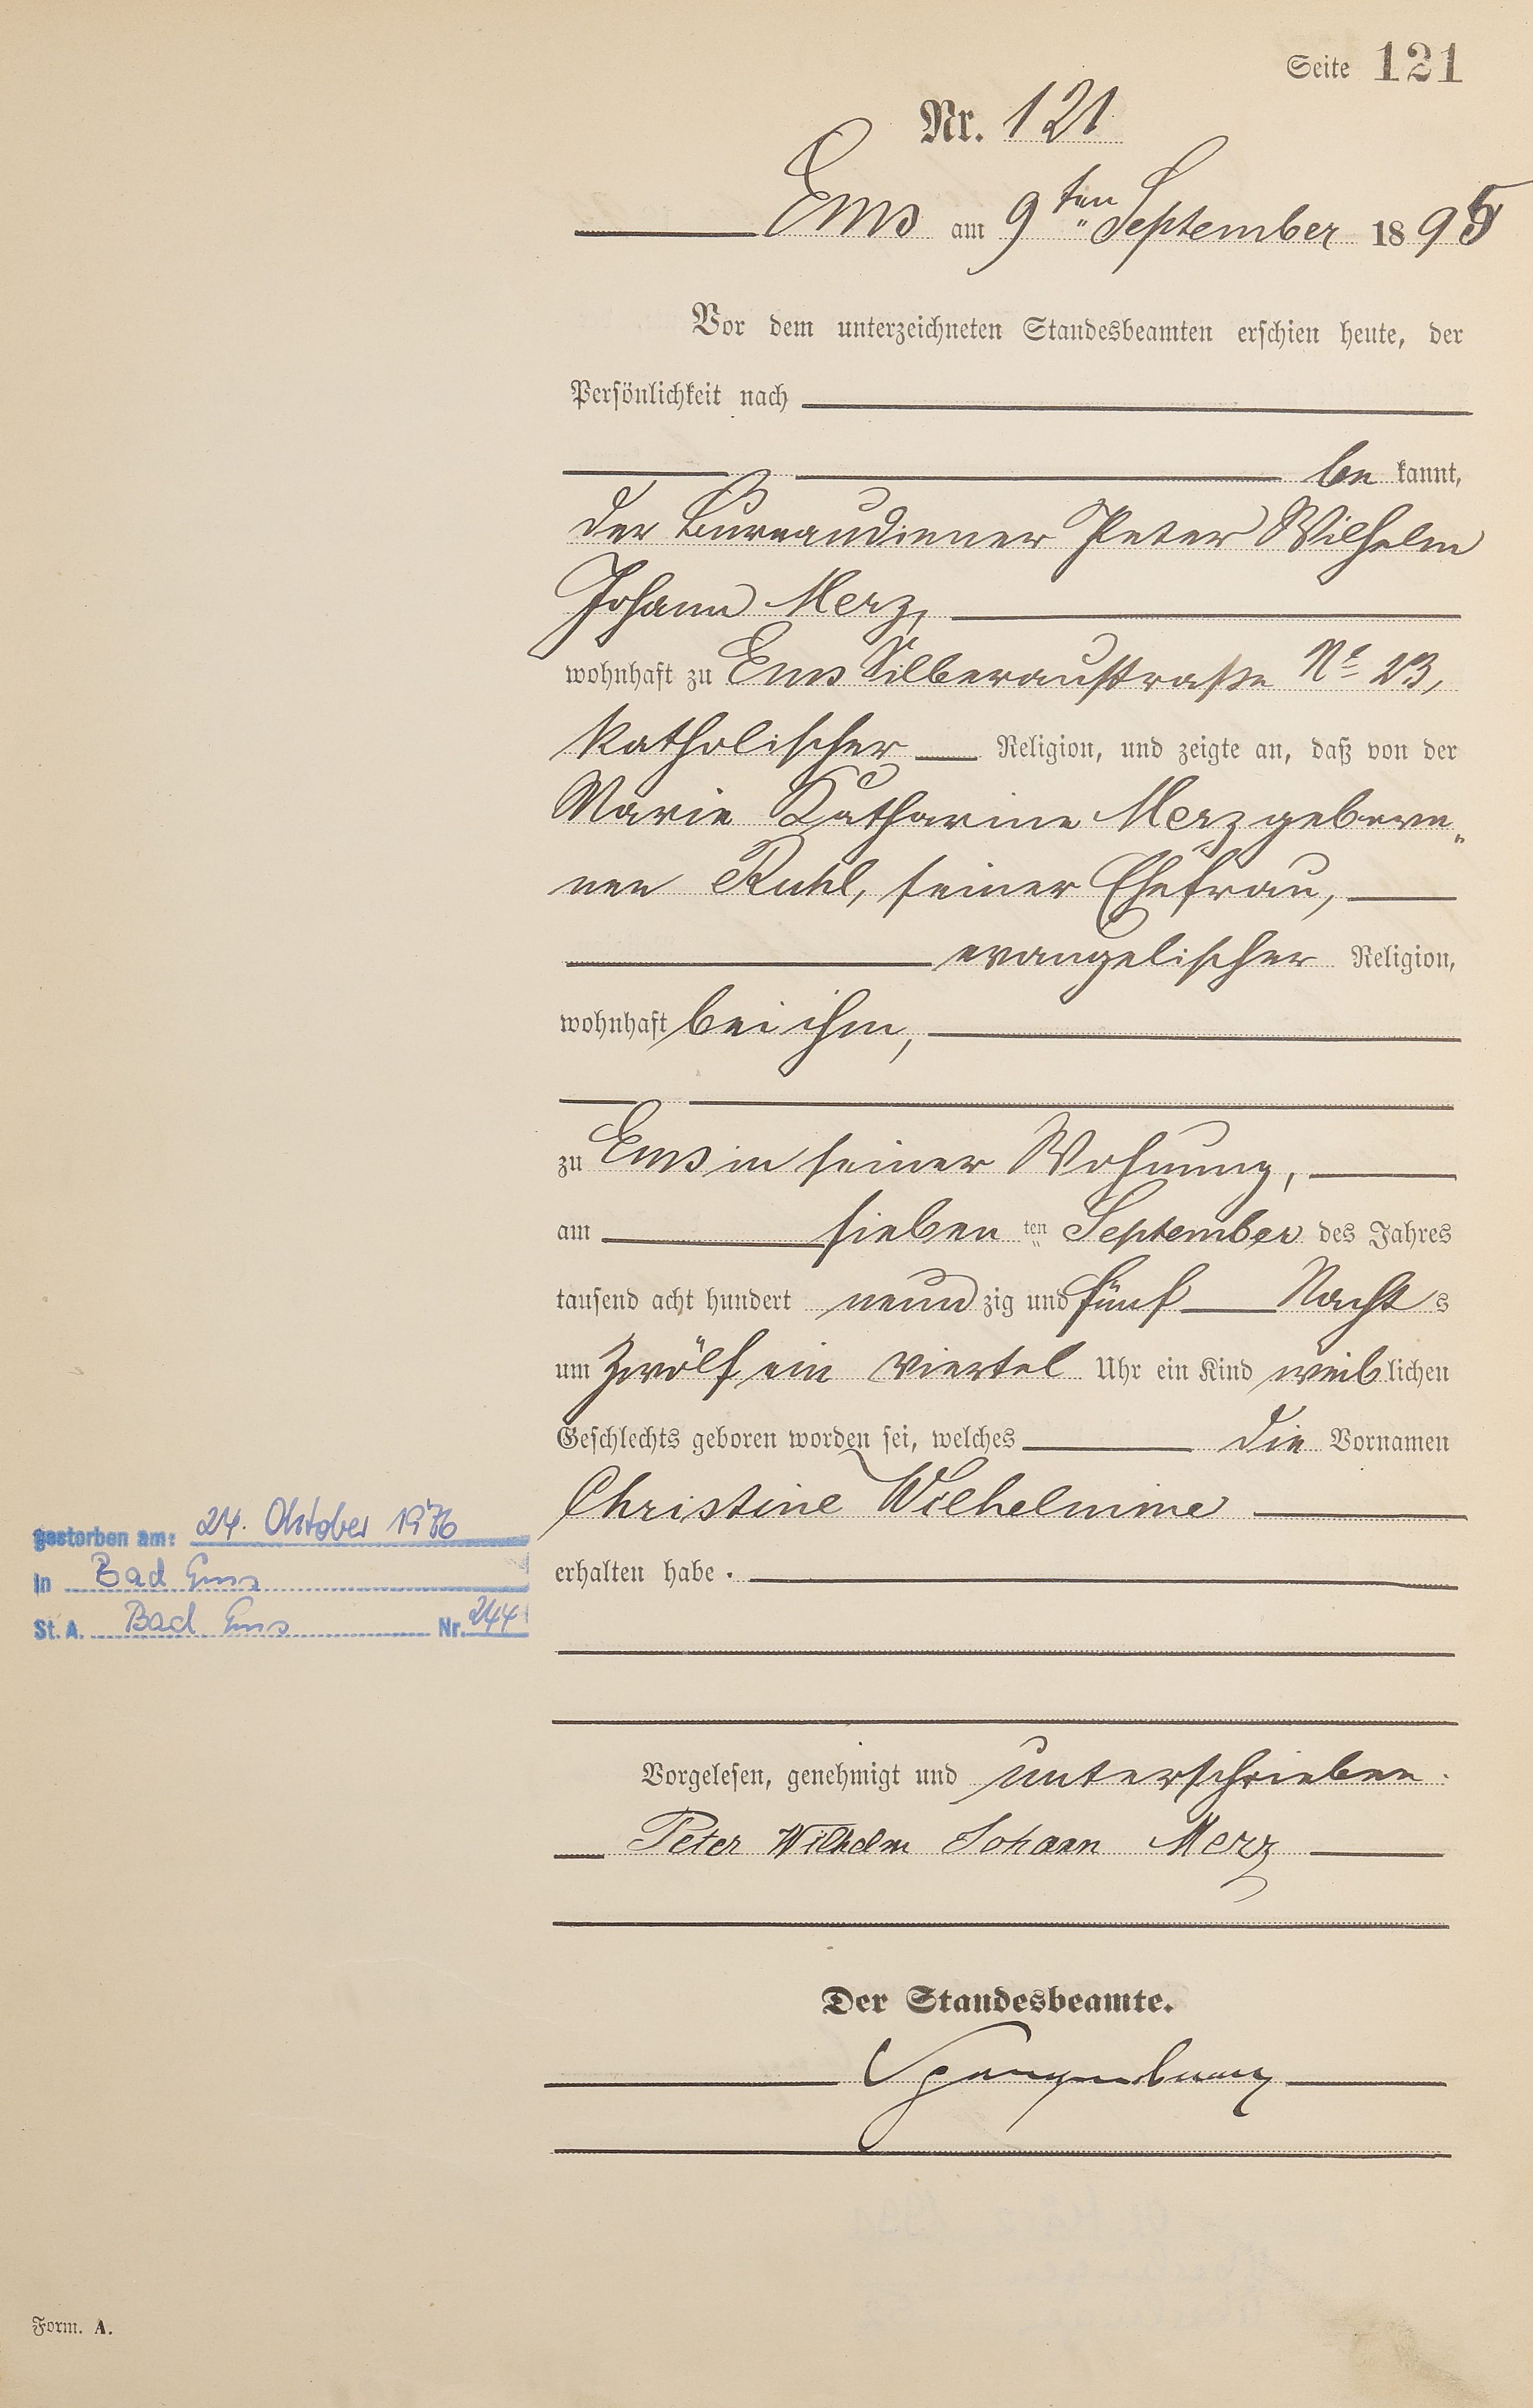 Seite 121
Nr. 121
Ems am 9ten September 1895
Vor dem unterzeichneten Standesbeamten erschien heute, der
Persönlichkeit nach
be kannt,
der Bureaudiener Peter Wilhelm
Johann Merz,
wohnhaft zu Ems Silberaustraße No 23,
katholischer Religion, und zeigte an, daß von der
Marie Katharine Merz gebore„
nen Ruhl, seiner Ehefrau,
evangelischer Religion,
wohnhaft bei ihm,
zu Ems in seiner Wohnung,
am sieben ten September des Jahres
tausend acht hundert neun zig und fünf Nacht s
um zwölf ein viertel Uhr ein Kind weib lichen
Geschlechts geboren worden sei, welches die Vornamen
Christine Wilhelmine
erhalten habe.
gestorben am: 24. Oktober 1976
in Bad Ems
St. A. Bad Ems Nr. 244
Vorgelesen, genehmigt und unterschrieben.
Peter Wilhelm Johann Merz
Der Standesbeamte.
Spangenberg
Form. A.